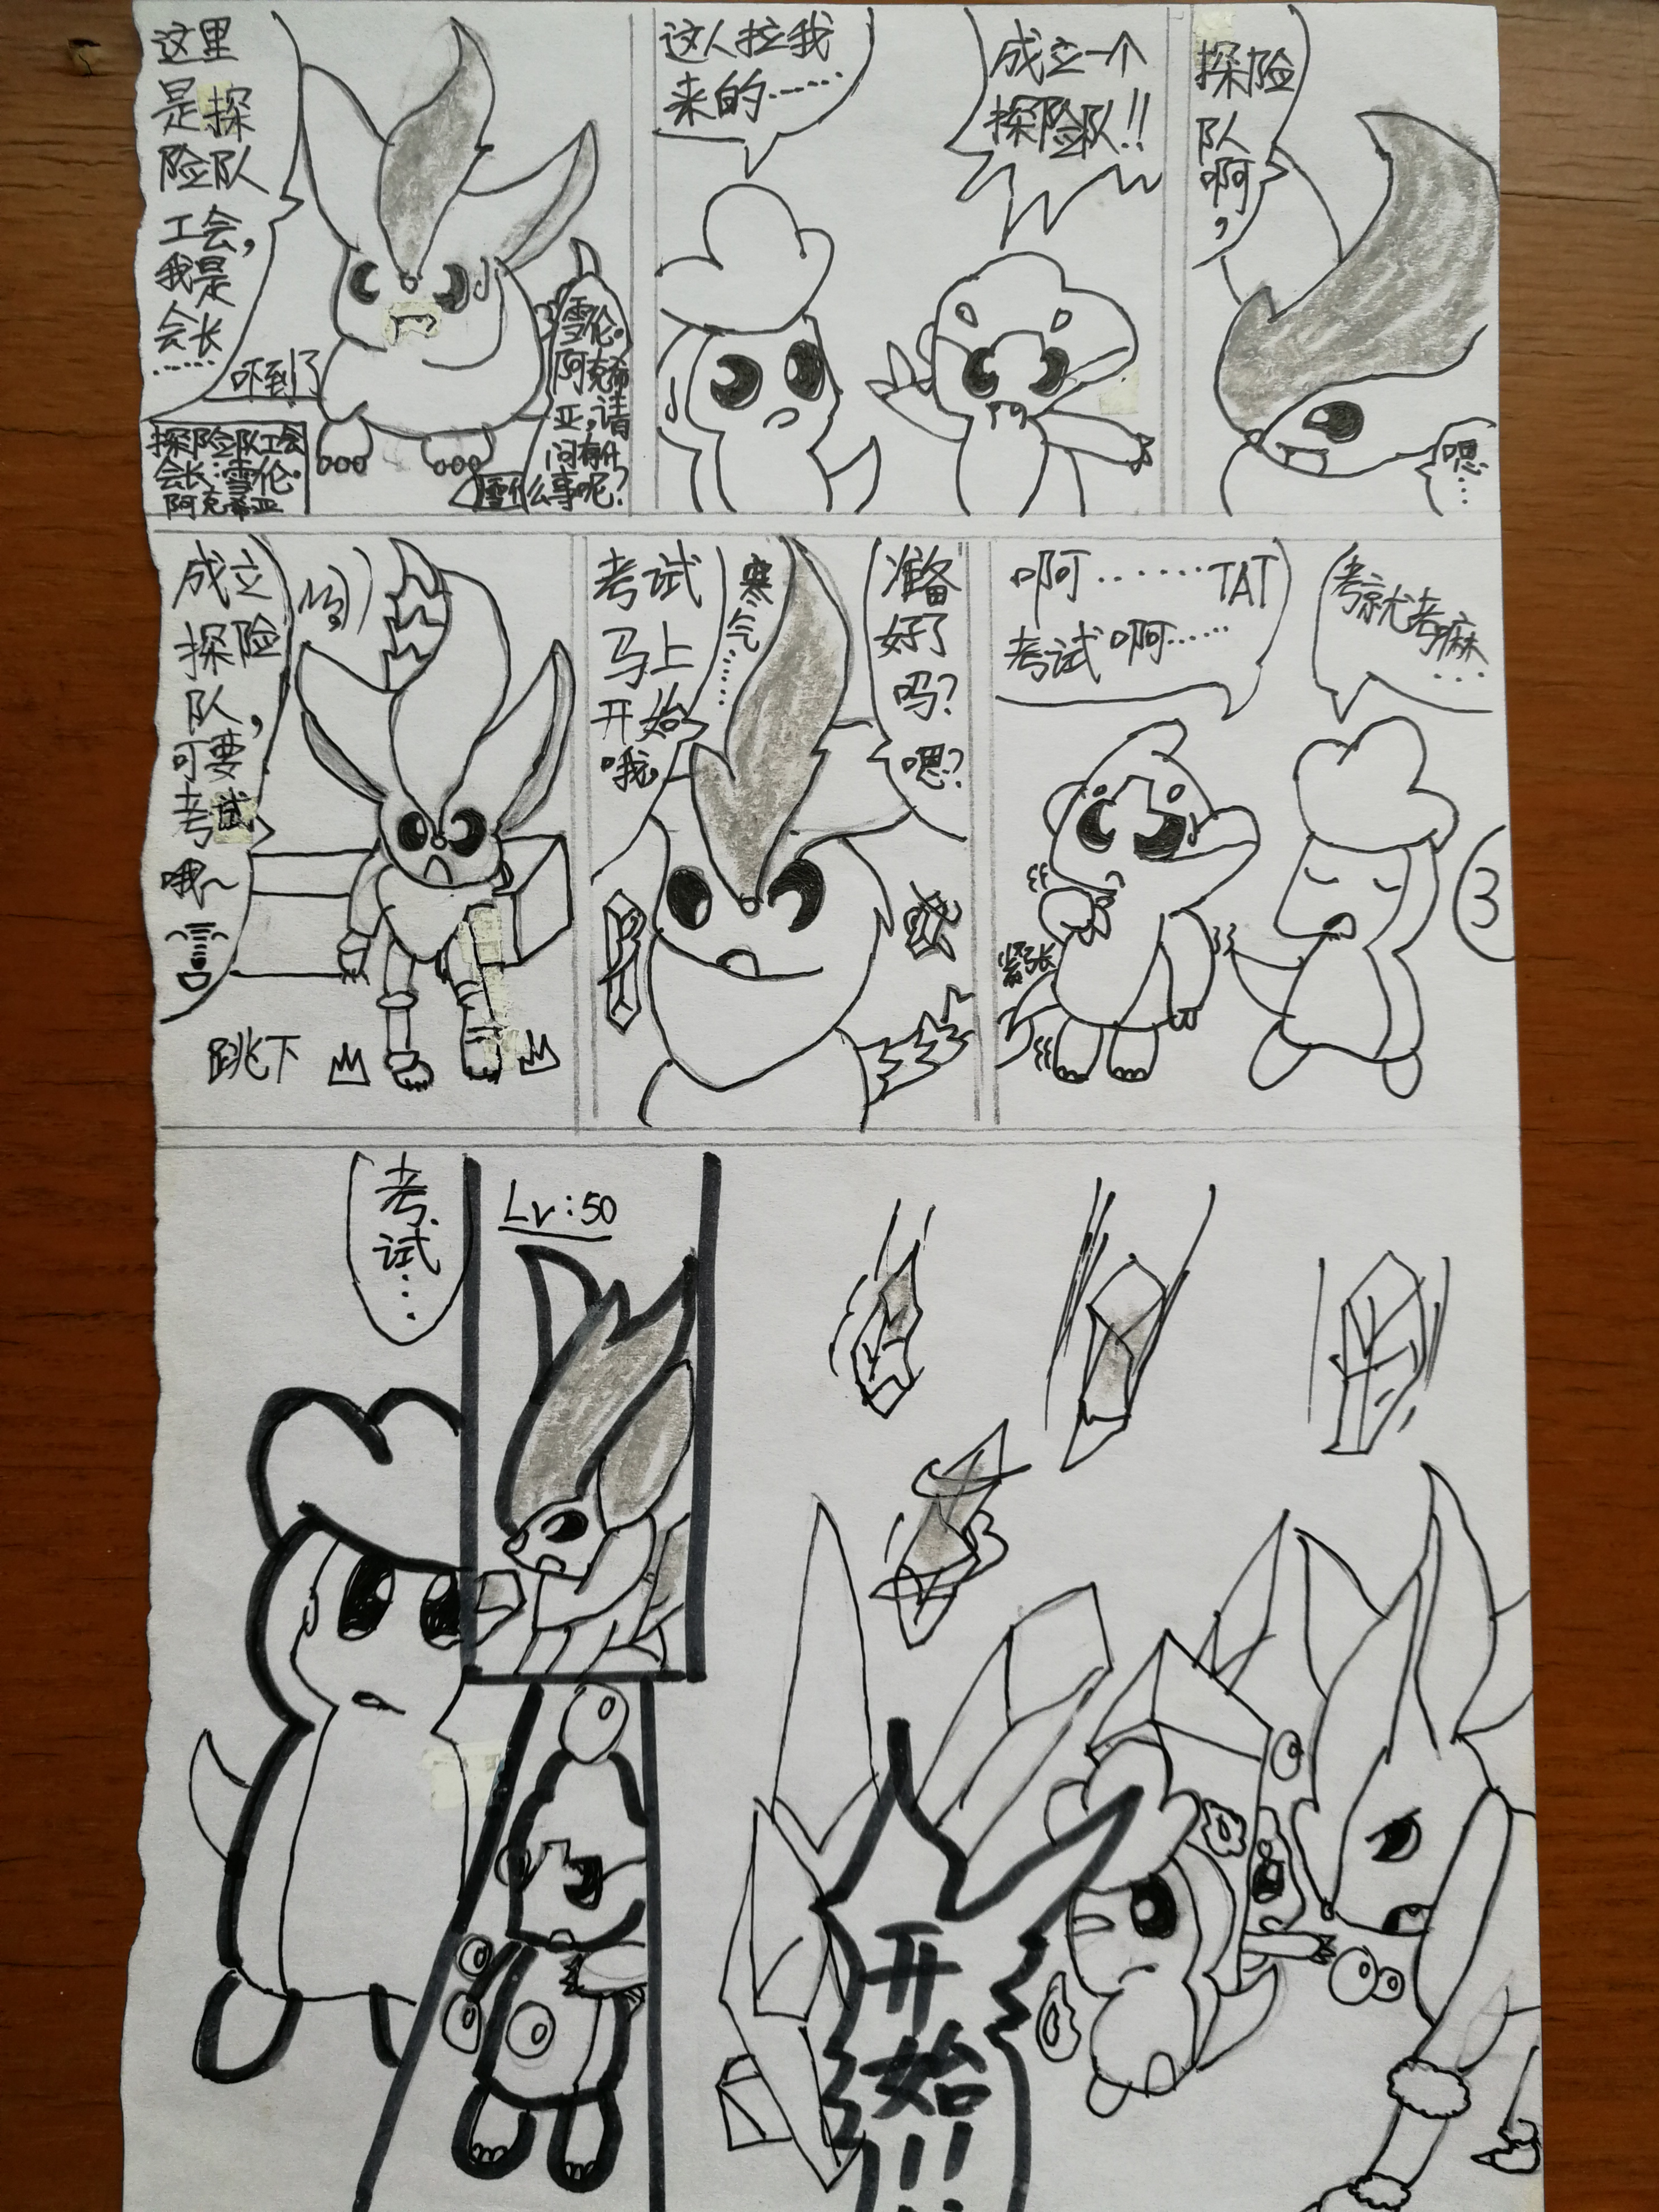 这里
是探
险队
工会，
我是
会长
……
吓到了
探险队工会
会长：雪伦·
阿克希亚
雪伦·
阿克希
亚，请
问有什
么事呢？
这人拉我
来的……
成立一个
探险队！！
探险
队
啊，
嗯
…
成立
探险
队，
可要
考试
哦~
跳下
考试
马上
开始
哦，
寒气……
准备
好了
吗？
嗯？
啊……TAT
考试啊……
考就考嘛
…
紧张
3
考
试
…
Lv:50
开
始
！！